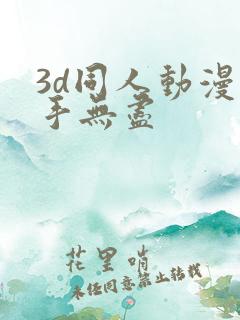 3d同人動漫
手無盡
花里哨
未經同意禁止轉載